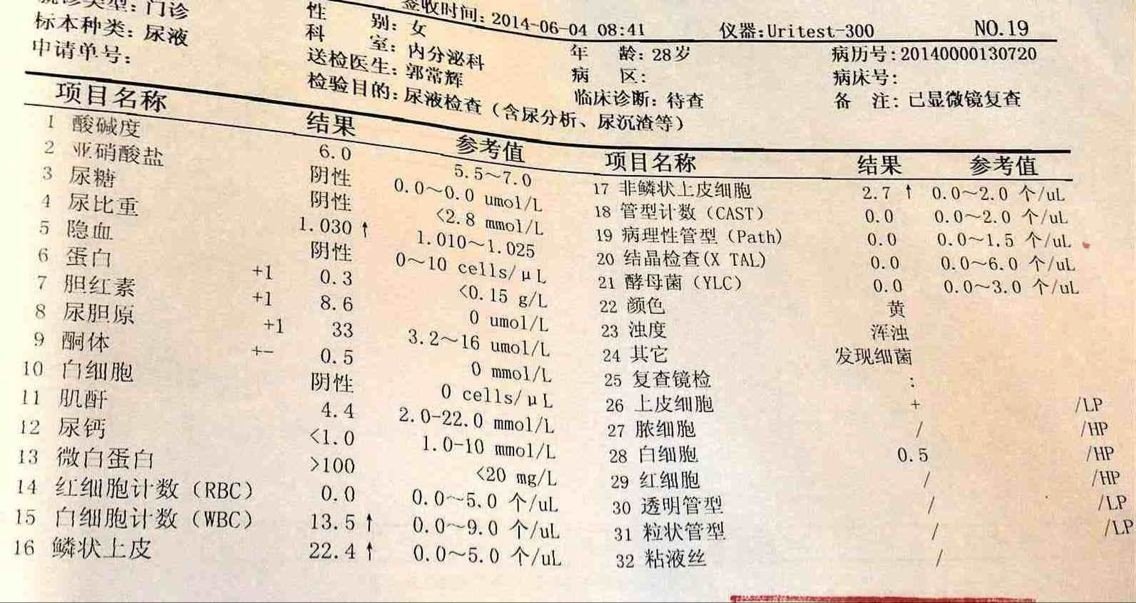 就诊类型：门诊 性 别：女 签收时间：2014-06-04 08:41 仪器：Uritest-300 NO.19
标本种类：尿液 科 室：内分泌科 年 龄：28岁 病历号：20140000130720
申请单号： 送检医生：郭常辉 病 区： 病床号：
检验目的：尿液检查（含尿分析、尿沉渣等） 临床诊断：待查 备 注：已显微镜复查
项目名称 结果 参考值
1 酸碱度 6.0 5.5～7.0
2 亚硝酸盐 阴性 0.0～0.0 umol/L
3 尿糖 阴性 <2.8 mmol/L
4 尿比重 1.030 ↑ 1.010～1.025
5 隐血 阴性 0～10 cells/μL
6 蛋白 +1 0.3 <0.15 g/L
7 胆红素 +1 8.6 0 umol/L
8 尿胆原 +1 33 3.2～16 umol/L
9 酮体 +- 0.5 0 mmol/L
10 白细胞 阴性 0 cells/μL
11 肌酐 4.4 2.0-22.0 mmol/L
12 尿钙 <1.0 1.0-10 mmol/L
13 微白蛋白 >100 <20 mg/L
14 红细胞计数（RBC） 0.0 0.0～5.0 个/uL
15 白细胞计数（WBC） 13.5 ↑ 0.0～9.0 个/uL
16 鳞状上皮 22.4 ↑ 0.0～5.0 个/uL
项目名称 结果 参考值
17 非鳞状上皮细胞 2.7 ↑ 0.0～2.0 个/uL
18 管型计数（CAST） 0.0 0.0～2.0 个/uL
19 病理性管型（Path) 0.0 0.0～1.5 个/uL
20 结晶检查(X TAL) 0.0 0.0～6.0 个/uL
21 酵母菌（YLC） 0.0 0.0～3.0 个/uL
22 颜色 黄
23 浊度 浑浊
24 其它 发现细菌
25 复查镜检 ：
26 上皮细胞 + /LP
27 脓细胞 / /HP
28 白细胞 0.5 /HP
29 红细胞 / /HP
30 透明管型 / /LP
31 粒状管型 / /LP
32 粘液丝 /